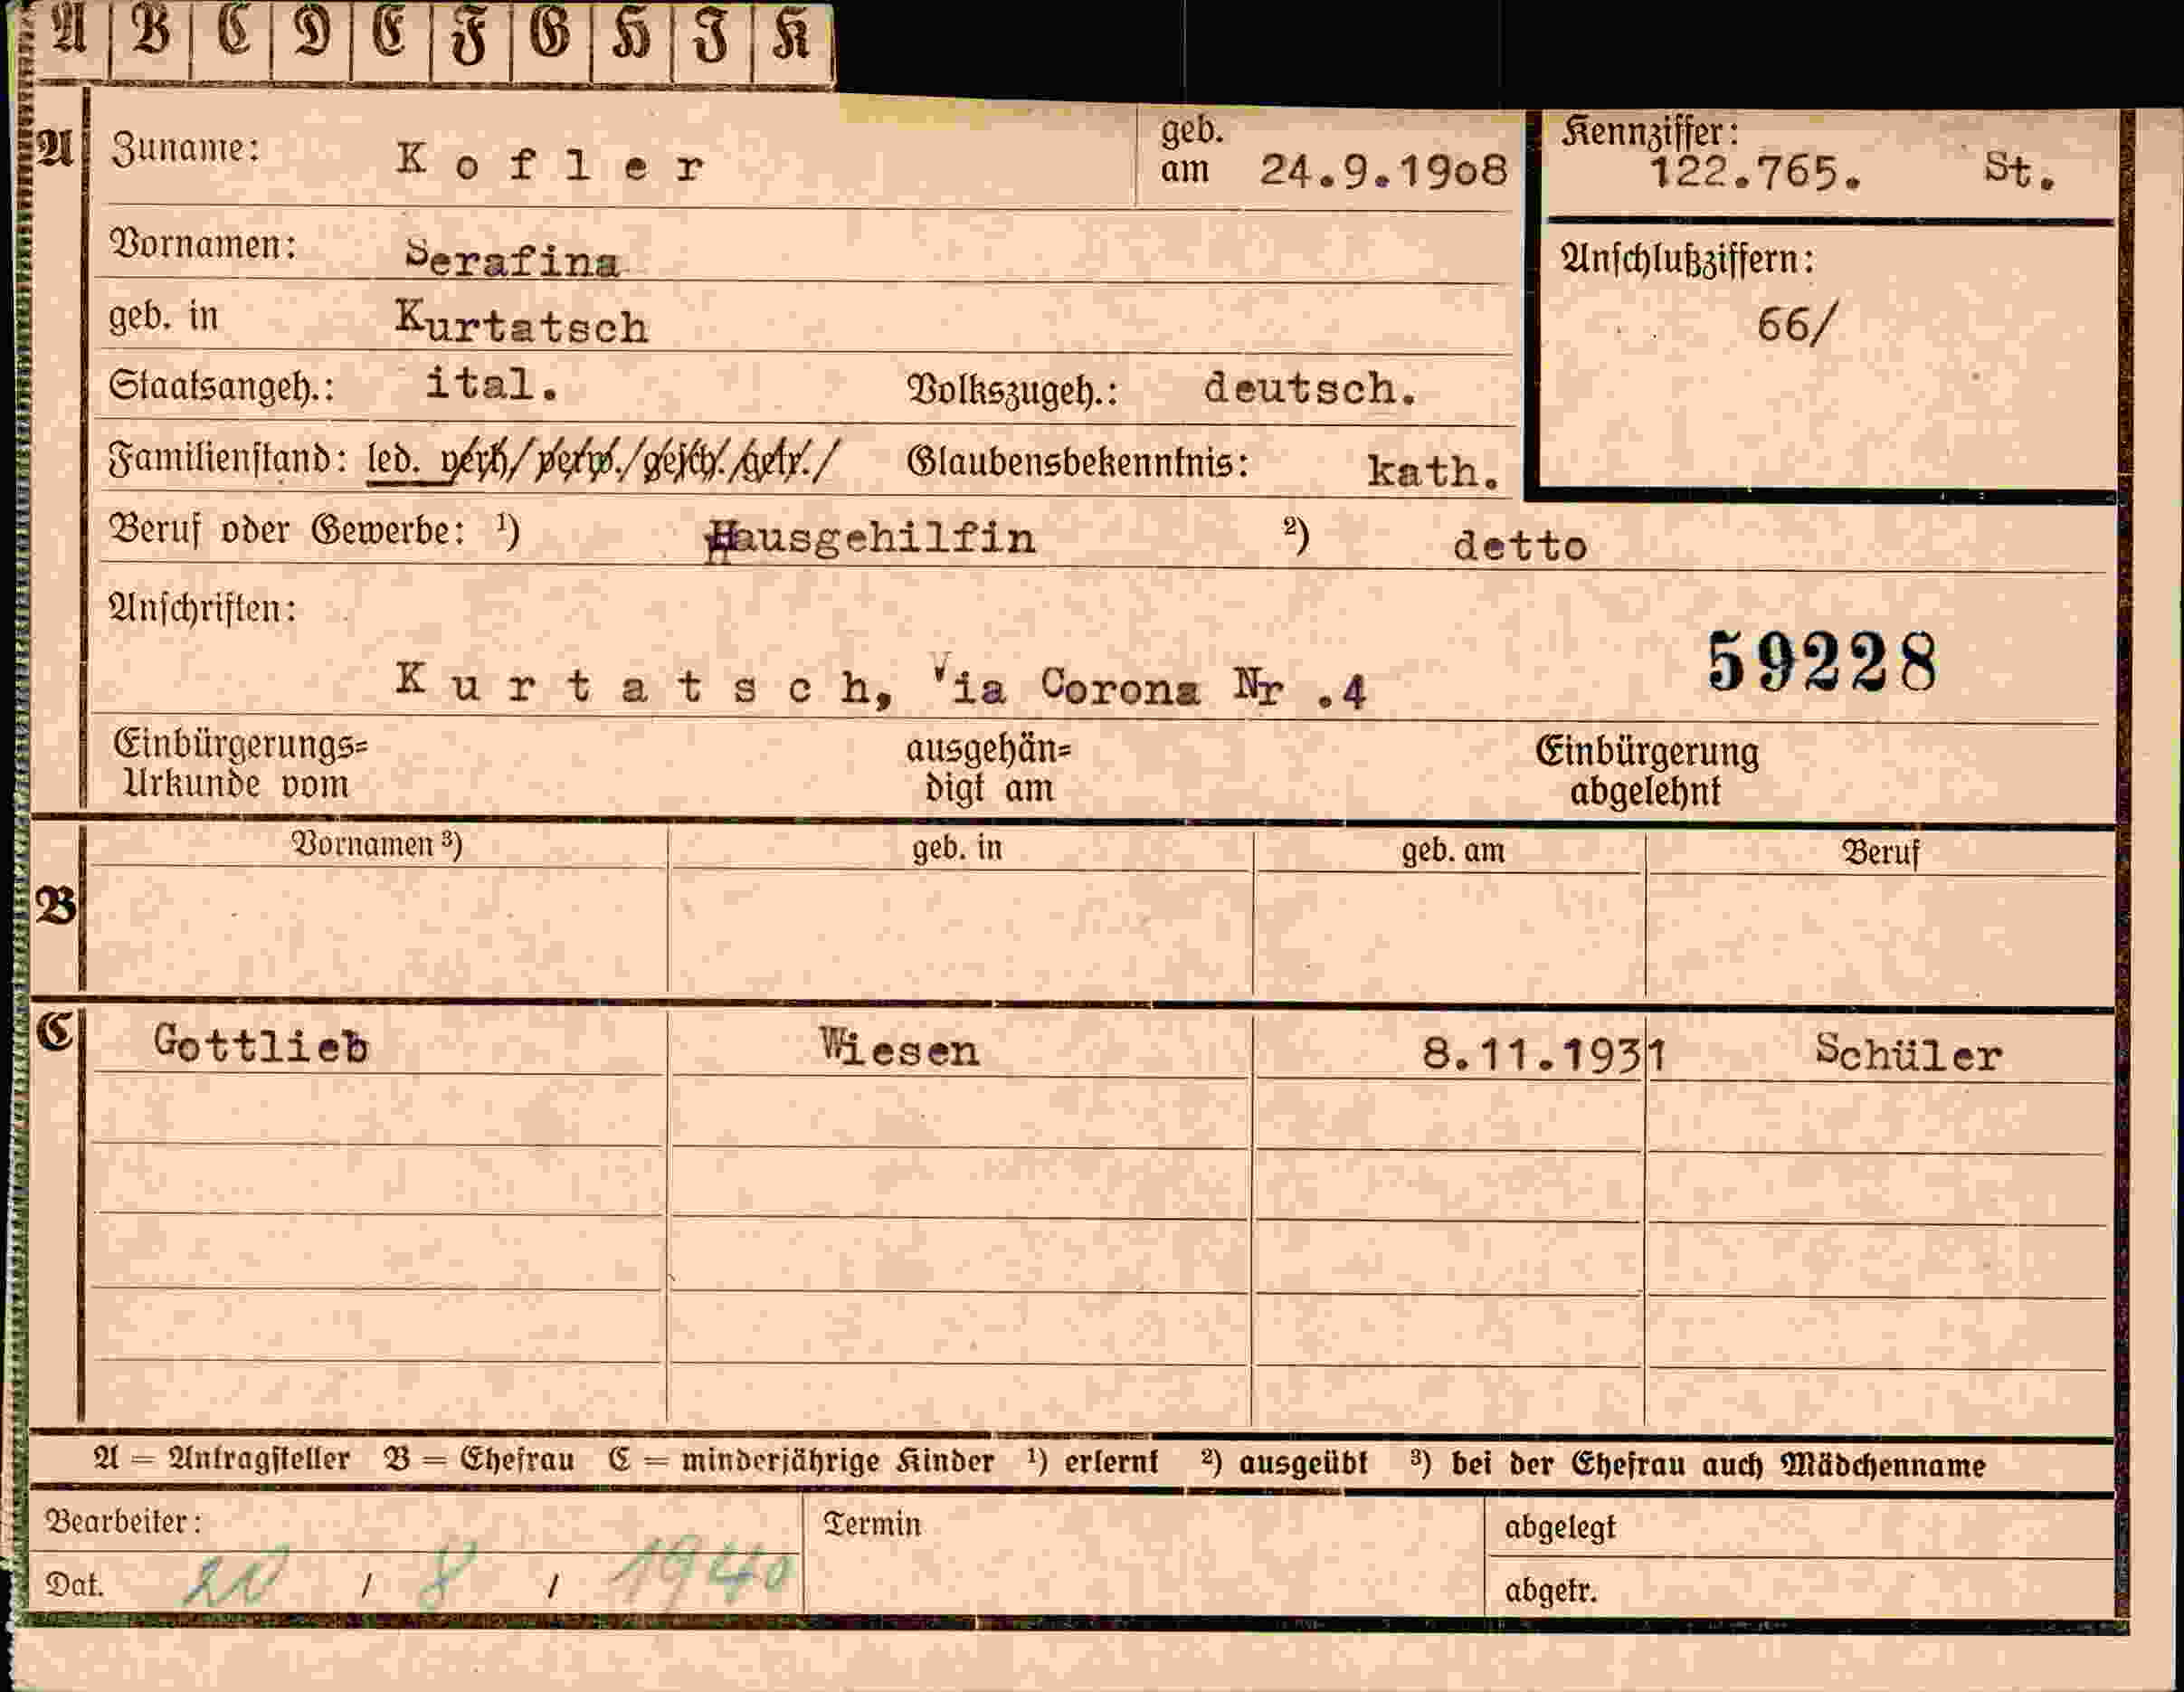 A B C D E F G H J K
A Zuname: Kofler geb. am 24.9.1908 Kennziffer: 122.765. St.
Vornamen: Serafina Anschlußziffern:
geb. in Kurtatsch 66/
Staatsangeh.: ital. Volkszugeh.: deutsch.
Familienstand: led. verh/verw./gesch./getr./ Glaubensbekenntnis: kath.
Beruf oder Gewerbe: ¹) Hausgehilfin ²) detto
Anschriften:
59228
Kurtatsch, Via Corona Nr .4
Einbürgerungs= ausgehän= Einbürgerung
Urkunde vom digt am abgelehnt
Vornamen ³) geb. in geb. am Beruf
B
C Gottlieb Wiesen 8.11.1931 Schüler
A = Antragsteller B = Ehefrau C = minderjährige Kinder ¹) erlernt ²) ausgeübt ³) bei der Ehefrau auch Mädchenname
Bearbeiter: Termin abgelegt
Dat. 20 / 8 / 1940 abgetr.